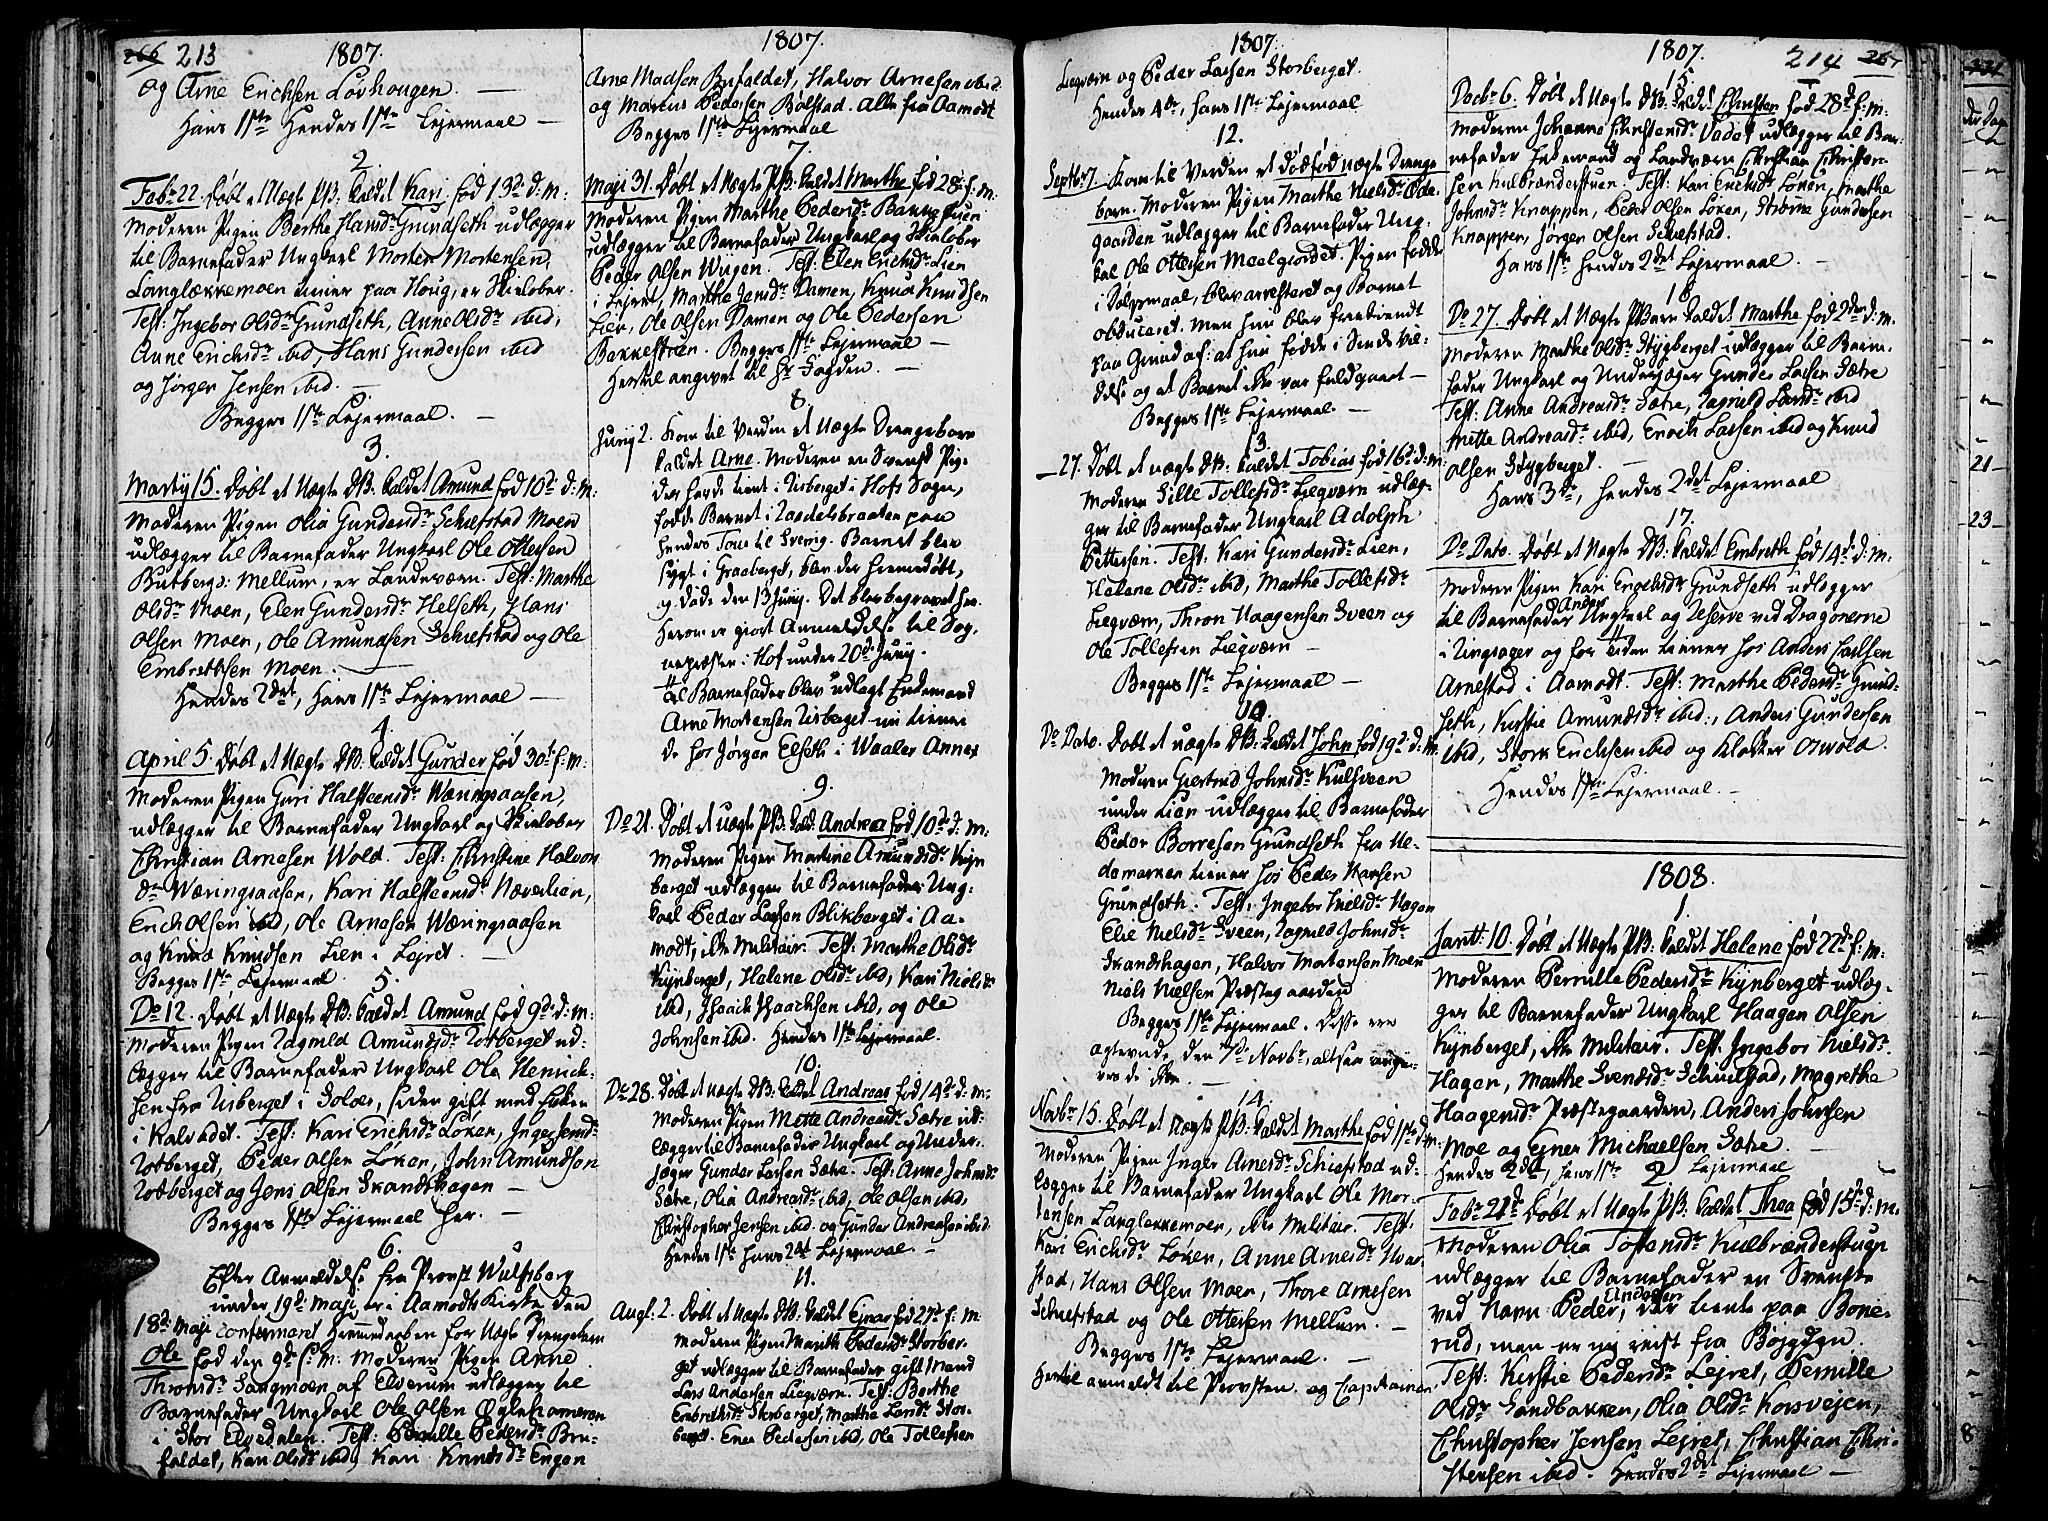 266 213 1807.
og Arne Erichsen Lovhougen. —
Hans 1ste Hendes 1ste Lejermaal —
2.
Febr. 22. Døbt et Uægte PB: kaldet Kari fød 13de d: m:
Moderen Pigen Berthe Hansdr Grundseth udlægger
til Barnefader Ungkarl Morten Mortensen
Langløkkemoen tiener paa Houg, er Skieløber.
Test: Ingebor Olsdr Grundseth, Anne Olsdr ibid,
Anne Erichsdr ibid, Hans Gundersen ibid
og Jørgen Jensen ibid. —
Begges 1ste Lejermaal. —
3.
Martij 15. Døbt et Uægte DB: kaldet Amund fød 10de d: m:
Moderen Pigen Olia Gundersdr Schiefstad Moen
udlægger til Barnefader Ungkarl Ole Ottersen
Butbergs: Mellum, er Landeværn. Test: Marthe
Olsdr Moen, Elen Gundersdr Helseth, Hans
Olsen Moen, Ole Amundsen Schiefstad og Ole
Embrethsen Moen. —
Hendes 2det, Hans 1ste Lejermaal —
4.
April 5. Døbt et Uægte DB: kaldet Gunder fød 30te f: m:
Moderen Pigen Guri Halsteensdr Wæringsaasen,
udlægger til Barnefader Ungkarl og Skieløber
Christian Arnesen Wold. Test: Christine Halvors
dr Wæringsaasen, Kari Halsteensdr Næverlien,
Erich Olsen ibid, Ole Arnesen Wæringsaasen
og Knud Knudsen Lien i Lejret. —
Begges 1ste Lejermaal.
5.
Do 12. Døbt et Uægte DB: kaldet Amund fød 9de d: m:
Moderen Pigen Ragnild Amundsdr Rotberget ud-
lægger til Barnefader Ungkarl Ole Henrick-
sen fra Risberget i Soløer, siden gift med Enken
i Kalvadet. Test: Kari Erichsdr Løken, Inger
Rotberget, Peder Olsen Løken, John Amundsen
Rotberget og Jens Olsen Skandshagen —
Begges 1ste Lejermaal her. —
6.
Efter Anmeldelse fra Provst Wulfsberg
under 19de Maji er i Aamodts Kirke den
18de Maji confirmeret Hiemmedaaben for Uægte Drengebarn
Ole fød den 9de f: m: Moderen Pigen Anne
Thronsdr Sangmoen af Elverum udlægger til
Barnefader Ungkarl Ole Olsen
i Stor Elvedalen. Test: Pernille Pedersdr Bru-
foldet, Kari Olsdr ibid, Kari Knudsdr Engen
1807.
Arne Madsen Brufoldet, Halvor Arnesen ibid
og Marcus Pedersen Bolstad. Alle fra Aamodt
Begges 1ste Lejermaal
7.
Maji 31. Døbt et Uægte PB: kaldet Marthe fød 28de f: m:
Moderen Pigen Marthe Pedersdr Bakkestuen
udlægger til Barnefader Ungkarl og Skieløber
Peder Olsen Wiigen. Test: Elen Erichsdr Lien
i Lejret, Marthe Jensdr Damen, Knud Knudsen
Lien, Ole Olsen Damen og Ole Pedersen
Bakkestuen. Begges 1ste Lejermaal —
Hertil angivet til Hr Fogden. —
8.
Junij 2. Kom til Verden et Uægte Drengebarn
kaldet Arne. Moderen en Svensk Pige
der havde tient i Risberget i Hofs Sogn,
fødde Barnet i paa
hendes Tour til Sverrig. Barnet blev
sygt i Graaberget, blev der hiemmedøbt,
og døde den 13 Junij. Det blev begravet her.
Herom er giort Anmeldelse til Sog-
nepræsten i Hof under 20de Junij.
Til Barnefader blev udlagt Enkemand
Arne Mortensen Risberget nu tienen-
de hos Jørgen Elseth i Waaler Annex
9.
Do 21. Døbt et uægte PB: kald. Andrea fød 10de d: m:
Moderen Pigen Martine Amundsdr Kyn
berget udlægger til Barnefader Ung-
karl Peder Larsen Blikberget i Aa-
modt, ikke Militair. Test: Marthe Olsdr
Kynberget, Helene Olsdr ibid, Kari Nielsdr
ibid, Isaach Isaachsen ibid, og Ole
Johnsen ibid. Hendes 1ste Lejermaal.
10.
Do 28. Døbt et uægte DB: kaldet Andreas fød 14de d: m:
Moderen Pigen Mette Andreasdr Sætre ud-
lægger til Barnefader Ungkarl og Under-
jæger Gunder Larsen Sætre. Test: Anne Johnsdr
Sætre, Olia Andreasdr ibid, Ole Olsen ibid,
Christopher Jensen ibid. og Gunder Andreasen ibid
Hendes 1ste Hans 2det Lejermaal —
11.
Augt. 2. Døbt et Uægte DB: kaldet Einar fød 27de f: m:
Moderen Pigen Marith Pedersdr Storber-
get udlægger til Barnefader gift Mand
Lars Andersen Liegværn. Test: Berthe
Embrethsdr Storberget, Marthe Larsdr Stor-
berget. Ener Pedersen ibid, Ole Tollefsen
1807.
Liegværn og Peder Larsen Storberget.
Hendes 4de, Hans 1ste Lejermaal
12.
Septbr 7. Kom til Verden et dødfød uægte Drenge-
barn. Moderen Pigen Marthe Nielsdr Øde-
gaarden udlægger til Barnefader Ung-
karl Ole Ottersen Meelgiordet. Pigen fødde
i Dølgsmaal, blev arresteret og Barnet
obduceret. Men hun blev frikiendt
paa Grund af: at hun fødde i Sindsvil-
delse og at Barnet ikke var fuldgaaet —
Begges 1ste Lejermaal. —
13.
— 27. Døbt et uægte DB: kaldet Tobias fød 16de d: m:
Moderen Sille Tollefsdr Liegværn udlæg-
ger til Barnefader Ungkarl Adolph
Pettersen. Test: Kari Gundersdr Lien,
Helene Olsdr ibid, Marthe Tollefsdr
Liegværn, Thron Haagensen Sveen og
Ole Tollefsen Liegværn —
Begges 1ste Lejermaal —
14.
Do Dato. Døbt et uægte DB: kaldet John fød 19de d: m:
Moderen Giertrud Johnsdr Kulsveen
under Lien udlægger til Barnefader
Peder Borresen Grundseth fra He-
demarken tiener hos Peder Hansen
Grundseth. Test: Ingebor Nielsdr Hagen
Elie Nielsdr Sveen, Ragnild Johnsdr
Skandshagen, Halvor Mortensen Moen
Niels Nielsen Præstegaarden
Begges 1ste Lejermaal. Disse ere
ægteviede den 7de Novbr, altsaa angi-
ves de ikke. —
14.
Novbr 15. Døbt et Uægte PB: kaldet Marthe fød 1ste d: m:
Moderen Pigen Inger Arnesdr Schiefstad ud-
lægger til Barnefader Ungkarl Ole Mor-
tensen Langløkkemoen, ikke Militair. Test:
Kari Erichsdr Løken, Anne Arnesdr
stad, Hans Olsen Moen, Thore Arnesen
Schiefstad og Ole Ottersen Mellum. —
Begges 1ste Lejermaal. —
Hertil anmeldt til Provsten og Capitainen.
1807. 214
15.
Decbr 6. Døbt et Uægte DB: kaldet Christen fød 28de f: m:
Moderen Johanne Christensdr Vadet udlægger til Bar-
nefader Enkemand og Landværn Christian Christen-
sen Kulbrænderstuen. Test: Kari Erichsdr Løken, Marthe
Johnsdr Knappen, Peder Olsen Løken, Gundersen
Knappen, Jørgen Olsen Schiefstad.
Hans 1ste Hendes 2det Lejermaal. —
16.
Do 27. Døbt et Uægte PBarn kaldet Marthe fød 2den d: m:
Moderen Marthe Olsdr Stygberget udlægger til Barne-
fader Ungkarl og Underjæger Gunder Larsen Sætre
Test: Anne Andreasdr Sætre, Ragnild Larsdr ibid
Mette Andreasdr ibid, Enoch Larsen ibid og Knud
Olsen Stygberget. —
Hans 3die, Hendes 2det Lejermaal
17.
Do Dato. Døbt et Uægte DB: kaldet Embreth fød 14de d: m:
Moderen Pigen Kari Engebrdr Grundseth udlægger
til Barnefader Anders Ungkarl og Reserve ved Dragonerne
i Ringsager og for tiden tiener hos Anders Carlsen
Arnestad i Aamodt. Test: Marthe Pedersdr Grund-
seth, Kirstie Amundsdr ibid., Anders Gundersen
ibid, Stork Erichsen ibid og Klokker Oswold.
Hendes 1ste Lejermaal. —
1808.
1
Jan: 10. Døbt et Uægte PB: kaldet Helene fød 22de f: m:
Moderen Pernille Pedersdr Kynberget udlæg-
ger til Barnefader Ungkarl Haagen Olsen
Kynberget, ikke Militair. Test: Ingebor Nielsdr
Hagen, Marthe Svendsdr Schiefstad, Magrethe
Haagensdr Præstegaarden, Anders Johnsen
Moe og Ejner Michaelsen Sætre. —
Hendes 2det, Hans 1ste Lejermaal
2
Febr. 21de Døbt et Uægte PB: kaldet Thea fød 15de d: m.
Moderen Olia Tostensdr Kulbrænderstuen
udlægger til Barnefader en Svensk
ved Navn Peder Andersen, der tiente paa Bone-
rud, men er nu reist fra Bøjgden
Test: Kirstie Pedersdr Lejret, Pernille
Olsdr Sandbakken, Olia Olsdr Korsvejen,
Christopher Jensen Lejret, Christian Chri-
stensen ibid. Hendes 2det Lejermaal —
21
23
8